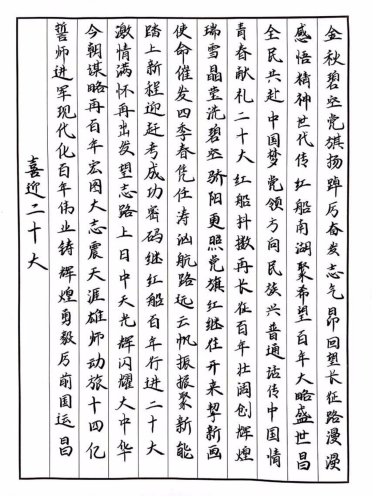 金秋碧空党旗扬踔厉奋发志气昂回望长征路漫漫
感悟精神世代传红船南湖聚希望百年大略盛世昌
全民共赴中国梦党领方向民族兴普通话传中国情
青春献礼二十大红船抖擞再长征百年壮阔创辉煌
瑞雪晶莹洗碧空骄阳更照党旗红继往开来挈新画
使命催发四季春凭任涛汹航路远云帆振振聚新能
踏上新程迎赶考成功密码继红船百年行进二十大
激情满怀再出发望志路上日中天光辉闪耀大中华
今朝谋略再百年宏图大志震天涯雄师动旅十四亿
誓师进军现代化百年伟业铸辉煌勇毅厉前国运昌
喜迎二十大